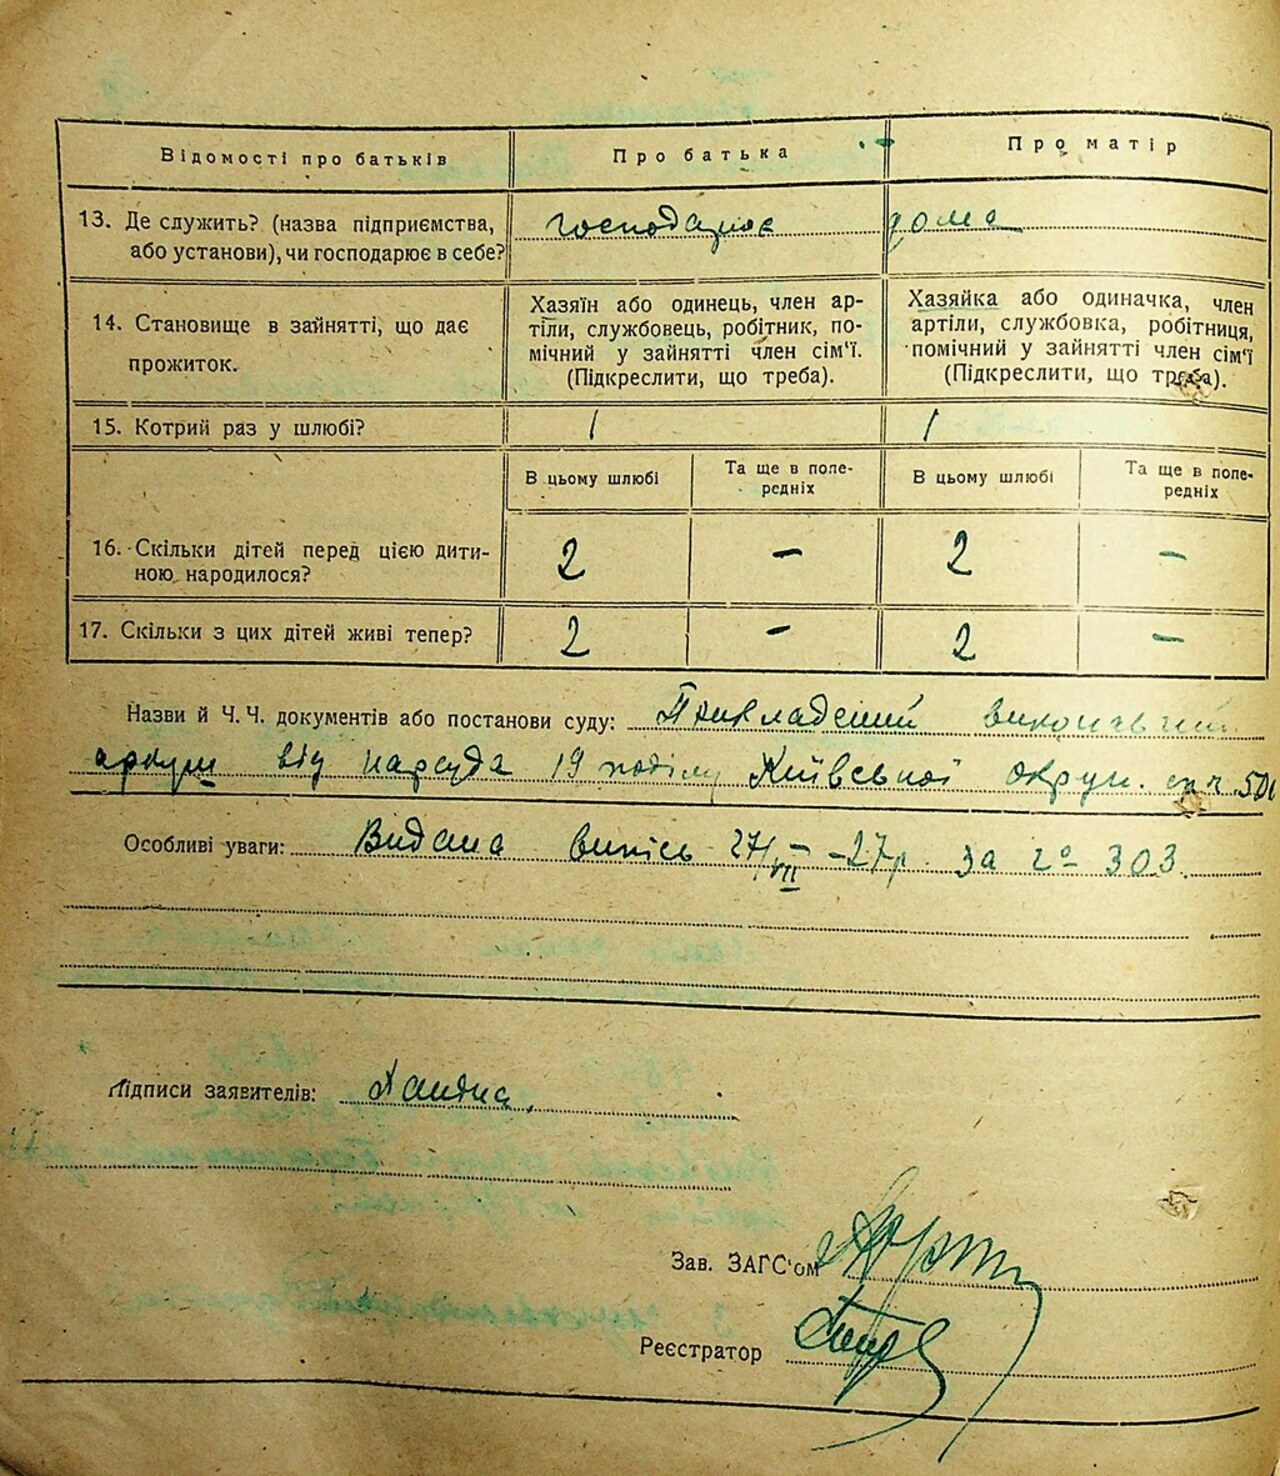 Відомості про батьків
Про батька
Про матір
13. Де служить? (назва підприємства,
або установи), чи господарює в себе?
господарює
дома
14. Становище в зайнятті, що дає
прожиток.
Хазяїн або одинець, член ар-
тіли, службовець, робітник, по-
мічний у зайнятті член сім'ї.
(Підкреслити, що треба).
Хазяйка або одиначка, член
артіли, службовка, робітниця,
помічний у зайнятті член сім'ї
(Підкреслити, що треба).
15. Котрий раз у шлюбі?
1
1
В цьому шлюбі
Та ще в попе-
редніх
В цьому шлюбі
Та ще в попе-
редніх
16. Скільки дітей перед цією дити-
ною народилося?
2 – 2 –
17. Скільки з цих дітей живі тепер?
2 – 2 –
Назви й Ч.Ч. документів або постанови суду: виконавчий
аркуш від нарсуда 19 поділу Київської округи
Особливі уваги: Видана випись 27/VII –27р. за № 303.
Підписи заявителів:
Зав. ЗАГС'ом
Реєстратор